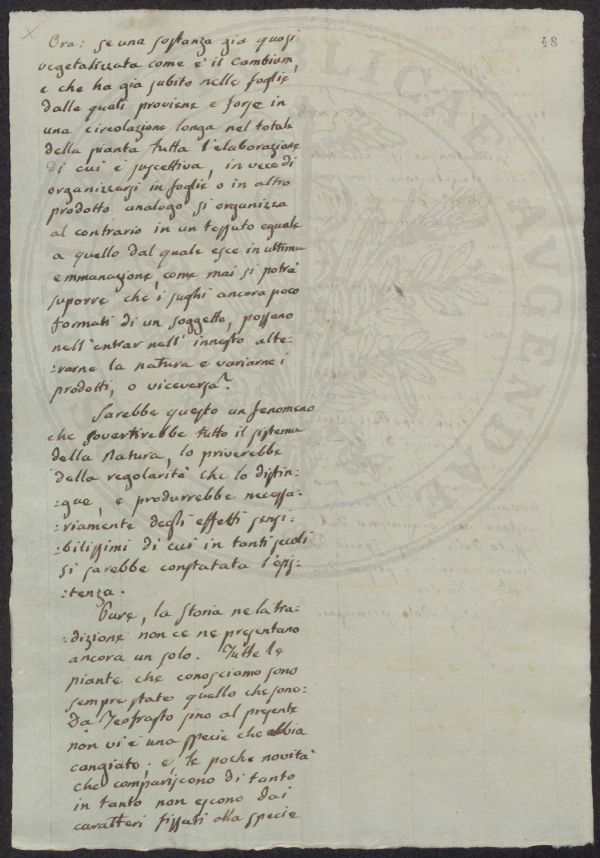 48
Ora: se una sostanza già quasi
vegetalizzata come è il Cambium,
e che ha già subito nelle foglie
dalle quali proviene e forse in
una circolazione longa nel totale
della pianta tutta l'elaborazione
di cui è suscettiva, in vece di
organizzarsi in foglie o in altro
prodotto analogo si organizza
al contrario in un tessuto eguale
a quello dal quale esce in ultima
emmanazione, come mai si potrà
suporre che i sughi ancora poco
formati di un soggetto, possano
nell'entrar nell'innesto alte:
:rarne la natura e variarne i
prodotti, o viceversa?
Sarebbe questo un fenomeno
che sovertirebbe tutto il sistema
della Natura, lo priverebbe
della regolarità che lo distin:
:gue, e produrrebbe necessa:
:riamente degli effetti sensi:
:bilissimi di cui in tanti secoli
si sarebbe constatata l'esis:
:tenza.
Pure, la storia ne la tra:
:dizione non ce ne presentano
ancora un solo. Tutte le
piante che conosciamo sono
sempre state quello che sono:
Da Teofrasto sino al presente
non vi è una specie che abbia
cangiato; e, le poche novità
che compariscono di tanto
in tanto non escono dai
caratteri fissati alla specie
PUBLICAE AVGENDAE